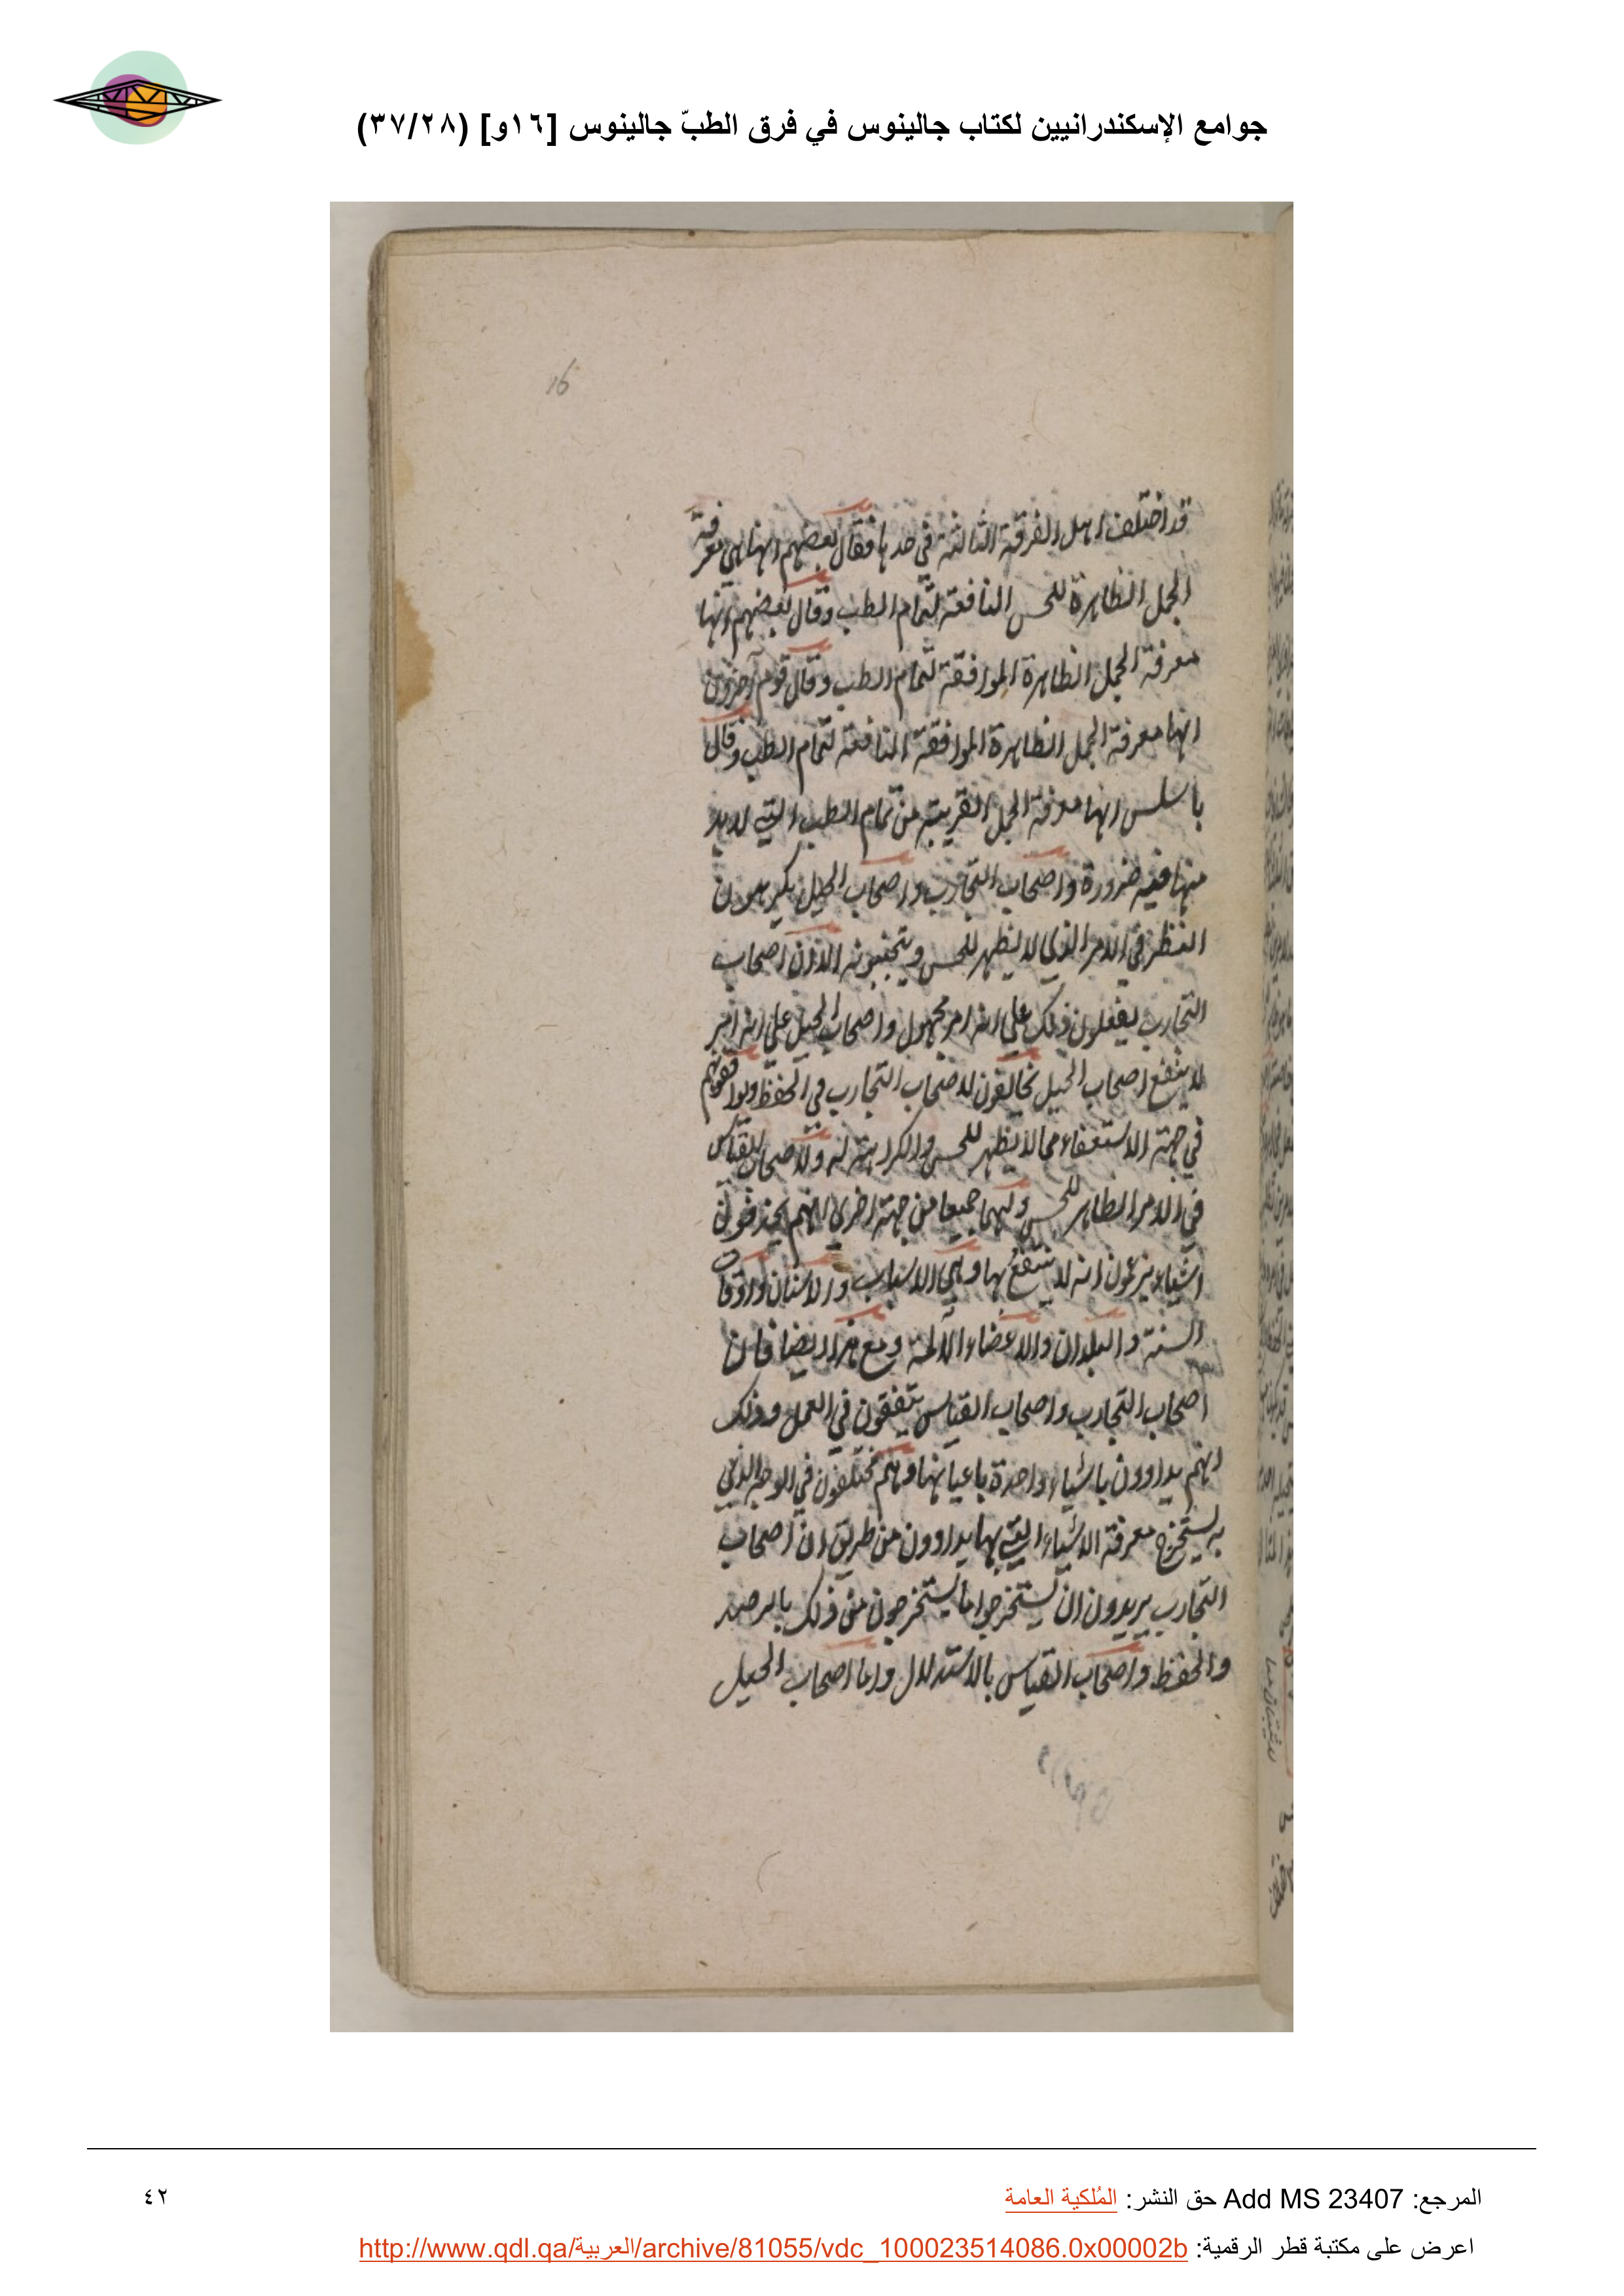 جوامع الإسكندرانيين لكتاب جالينوس في فرق الطبّ جالينوس [١٦و] (٣٧/٢٨)
16
قد اختلف اهل الفرقة الثالثة في حدها فقال بعضهم انها هي معرفة
الجمل الظاهرة للحس النافعة لتمام الطب وقال بعضهم انها
معرفة الجمل الظاهرة الموافقة لتمام الطب وقال قوم آخرون
انها معرفة الجمل الظاهرة الموافقة النافعة لتمام الطب وقال
باسلس انها معرفة الجمل القريبة من تمام الطب التي لا بد
منها فيه ضرورة واصحاب التجارب واصحاب الحيل يكرهون
النظر في الامر الذي لا يظهر للحس ويتجنبونه الا ان اصحاب
التجارب يفعلون ذلك على انه امر مجهول واصحاب الحيل على انه امر
لا ينتفع اصحاب الحيل مخالفون لاصحاب التجارب في الحفظ
في جهة الاستعفاء مما لا يظهر للحس والكراهية له ولاصحاب القياس
في الامر الظاهر للحس ولهما جميعا من جهة اخرى انهم يحذفون
اشياء يزعمون انه لا ينتفع بها وهي الاسباب والاسنان واوقات
السنة والبلدان والاعضاء الآلمة ومع هذا ايضا فان
اصحاب التجارب واصحاب القياس يتفقون في العمل وذلك
انهم يداوون باشياء واحدة باعيانها وهم مختلفون في الوجه الذي
به يستخرج معرفة الاشياء التي بها يداوون من طريق ان اصحاب
التجارب يريدون ان يستخرجوا ما يستخرجون من ذلك بالرصد
والحفظ واصحاب القياس بالاستدلال واما اصحاب الحيل
المرجع: Add MS 23407 حق النشر: المُلكية العامة
٤٢
اعرض على مكتبة قطر الرقمية: http://www.qdl.qa/العربية/archive/81055/vdc_100023514086.0x00002b